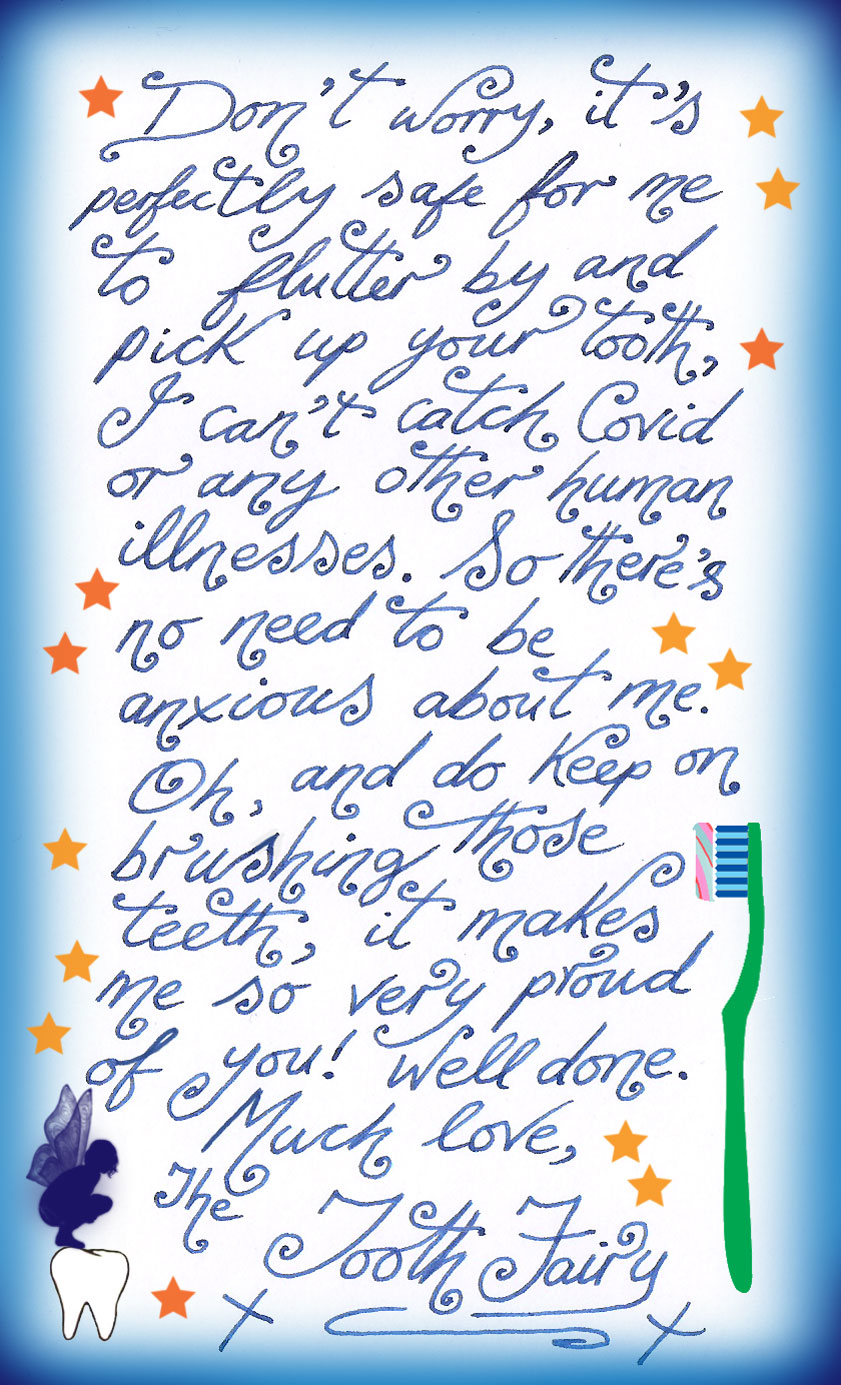 Don't worry, it's
perfectly safe for me
to flutter by and
pick up your tooth,
I can't catch Covid
or any other human
illnesses. So there's
no need to be
anxious about me.
Oh, and do keep on
brushing those
teeth, it makes
me so very proud
of you! Well done.
Much love,
The Tooth Fairy
x x